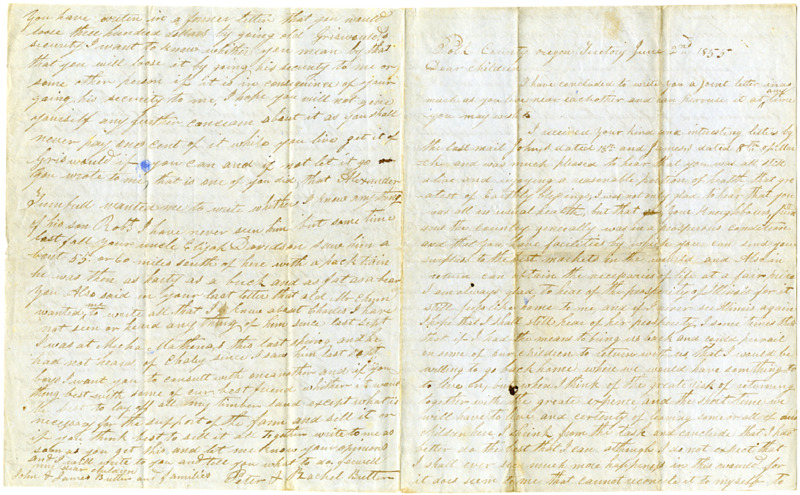 Polk County oregon Territory June 2nd 1855
Dear children
I have concluded to write you a joint letter in as
much as you live near each other and can peruse it at any time
you may wish
I received your kind and interesting letters by
the last mail John's dated 18th and James's dated 8th of
and was much pleased to hear that you was all still
alive and injoying a reasonable portion of health that
of I was not only glad to hear that you
was all in usual health, but that our Neighbours
and the country generally was in a prosperous condition
and that you have facilities by which you can send your
surpluss to the best markets in the world and Also in
return can obtain the of life at a fair price
I am always glad to hear of the prosperity of Illinois for it
still home to me, and if I never see Illinois again
I hope that I shall still hear of her prosperity, I some times think
that if I had the means to bring us back and could prevail
on some of our children to return with us that I would be
willing to go back home where we would have something to
to live on, but when I think of the great risk of returning
together with the greate expence and the short time we
will have to live and certenty of leaving some or all of our
children here I shrink from the task and conclude that I had
better do the best that I can although I do not expect that
I shall ever see much more happiness in this world for
it does seem to me that cannot reconcile it to myself to
You have writen in a former letter that you would
loose three hundred dollars by going old Griswould's
security I want to know whether you mean by that
that you will loose it by going his security to me or
some other person if it is in consequence of your
going his security to me, I hope you will not give
yourself any further about it as you shall
never pay one cent of it while you live get it of
Griswould if you can and if not let it go
you wrote to me, that is one of you did, that Alexander
Turnbull wanted me to write whether I know any thing
of his son Robt I have never seen him but some time
last fall your uncle Elijah Davidson saw him a
bout 55 or 60 miles south of here with a pack train
he was then as harty as a buck and as fat as a bear
You Also said in your last letter that old Mr
wanted me to write all that I know about Charles I have
not seen or heard any thing of him since last Sept
I was at this last spring, and he
had not heard of Charley since I saw him last Sept
boys I want you to consult with one another and if you
thing best with some of our best friend whether it would
be best to lay off all my timber land except what is
necessary for the support of the farm and sell it or
if you think best to sell it all together write to me as
soon as you get this and let me know your opinions
and I will write to you and tell you what to do, farewell
my dear children
John & James Butler and families Peter & Rachel Butler